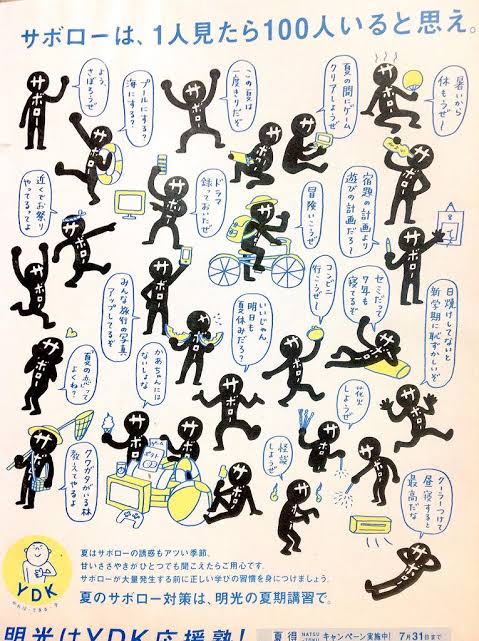 サボローは、1人見たら100人いると思え。
よう、
さぼろうぜ
プールにする?
海にする?
この夏は
一度きりだぞ
夏の間にゲーム
クリアしようぜ
暑いから
休もうぜ〜
近くでお祭り
やってるってよ
ドラマ
録っておいたぜ
冒険いこうぜ
宿題の計画より
遊びの計画だろ〜
みんな旅行の写真
アップしてるぞ
いいじゃん
明日も
夏休みだろ?
コンビニ
行こうぜ〜
セミだって
7年も
寝てるぞ
日焼けしてないと
新学期に恥ずかしいぞ
夏の恋って
よくね?
かあちゃんには
ないしょな
花火
しようぜ
怪談
しようぜ
クワガタがいる林
教えてやるよ
クーラーつけて
昼寝すると
最高だな
サボロー
YDK
やれば・できる・子
夏はサボローの誘惑もアツい季節。
甘いささやきがひとつでも聞こえたらご用心です。
サボローが大量発生する前に正しい学びの習慣を身につけましょう。
夏のサボロー対策は、明光の夏期講習で。
明光はYDK応援塾!
夏得
NATSU
キャンペーン実施中!
7月31日まで